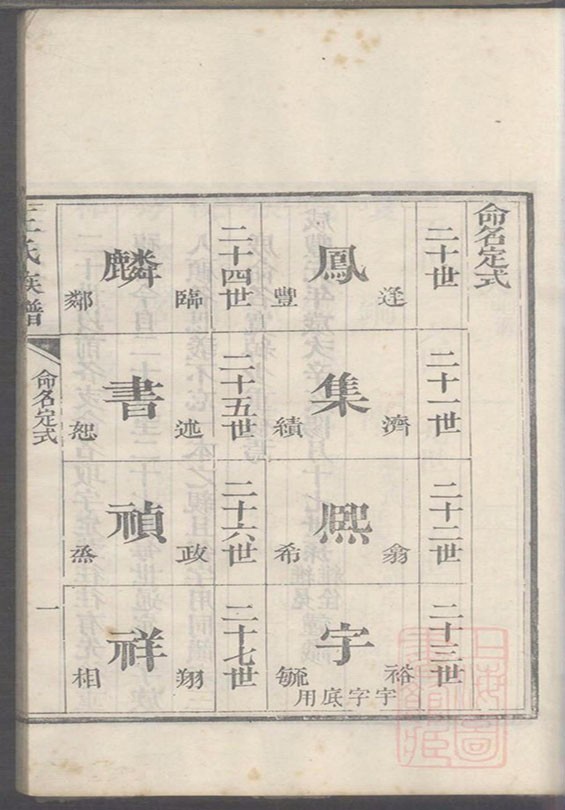 命名定式
二十世
鳳 逢 豐
二十一世
集 濟 績
二十二世
熙 翕 希
二十三世
宇 裕 毓
宇字底用
二十四世
麟 臨 鄰
二十五世
書 述 恕
二十六世
禎 政 烝
二十七世
祥 翔 相
王氏族譜
命名定式
一